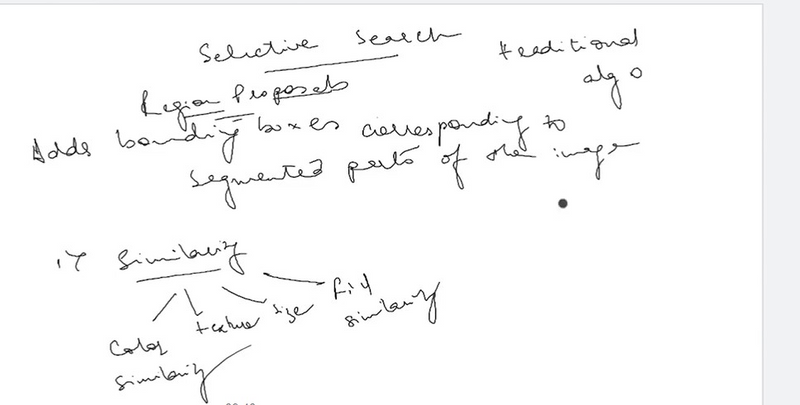 Selective Search
traditional
algo
Region Proposals
Adds bounding boxes corresponding to
segmented parts of the image
1) Similarity
Color
similarity
texture
size
fill
similarity